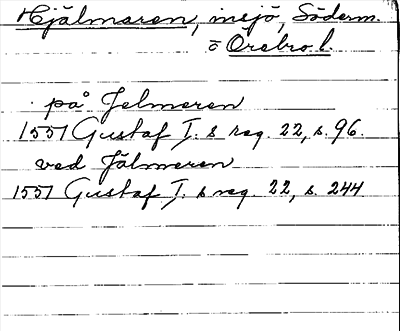 Hjälmaren, insjö, Söderm.
o Örebro l.
på Jelmeren
1551 Gustaf I. s reg. 22, s. 96.
ved Jälmeren
1551 Gustaf I. s reg. 22, s. 244